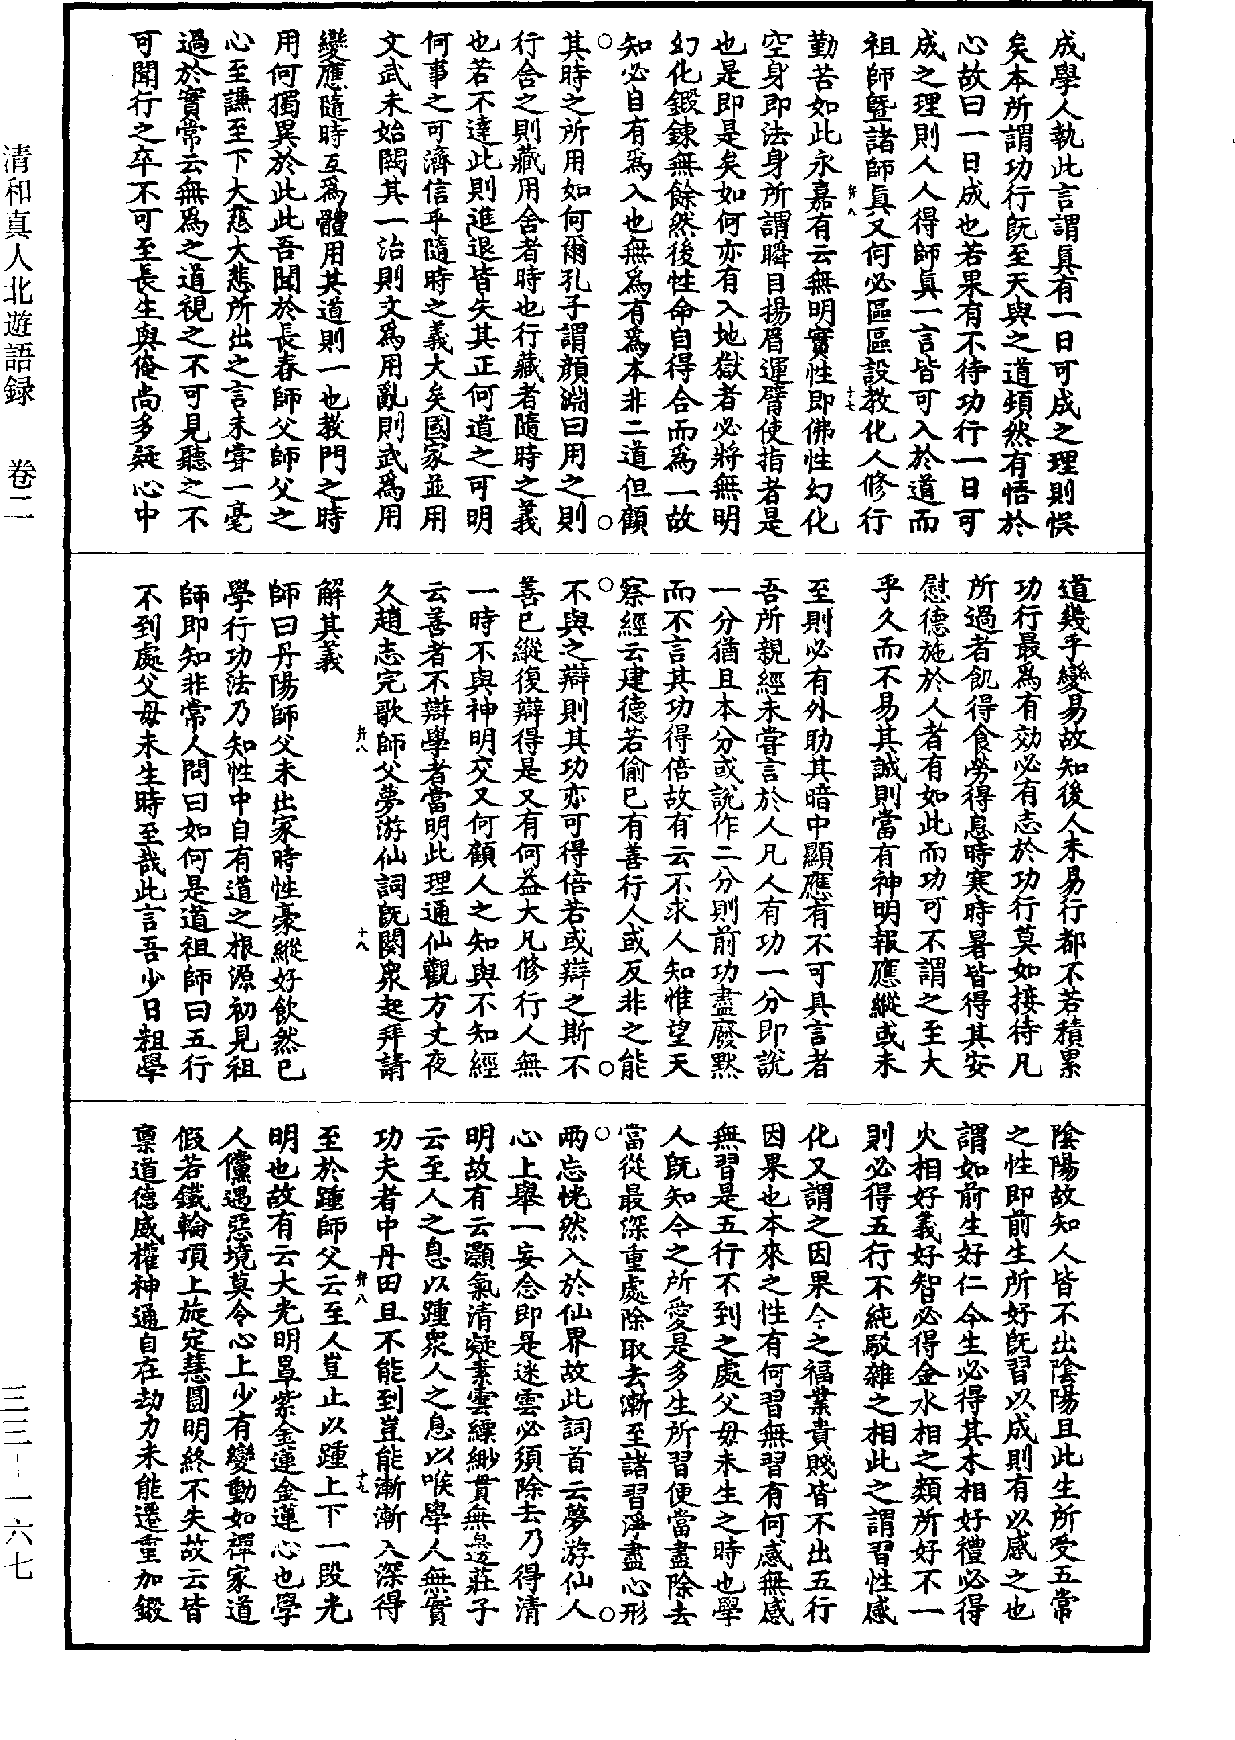 成學人執此言謂眞有一日可成之理則悞
矣本所謂功行旣至天與之道頓然有悟於
心故曰一日成也若果有不待功行一日可
成之理則人人得師眞一言皆可入於道而
祖師曁諸師眞又何必區區設教化人修行
弁八
十七
勤苦如此永嘉有云無明實性即佛性幻化
空身即法身所謂瞬目揚眉運臂使指者是
也是即是矣如何亦有入地獄者必將無明
幻化鍛鍊無餘然後性命自得合而爲一故
知必自有爲入也無爲有爲本非二道但顧
其時之所用如何爾孔子謂顔淵曰用之則
行舍之則藏用舍者時也行藏者隨時之義
也若不達此則進退皆失其正何道之可明
何事之可濟信乎隨時之義大矣國家並用
文武未始闕其一治則文爲用亂則武爲用
變應隨時互爲體用其道則一也教門之時
用何獨異於此此吾聞於長春師父師父之
心至謙至下大慈大悲所出之言未嘗一毫
過於實常云無爲之道視之不可見聽之不
可聞行之卒不可至長生與俺尚多疑心中
道幾乎變易故知後人未易行都不若積累
功行最爲有効必有志於功行莫如接待凡
所過者飢得食勞得息時寒時暑皆得其安
慰德施於人者有如此而功可不謂之至大
乎久而不易其誠則當有神明報應縱或未
至則必有外助其暗中顯應有不可具言者
吾所親經未嘗言於人凡人有功一分即說
一分猶且本分或說作二分則前功盡廢默
而不言其功得倍故有云不求人知惟望天
察經云建德若偷已有善行人或反非之能
不與之辯則其功亦可得倍若或辯之斯不
善已縱復辯得是又有何益大凡修行人無
一時不與神明交又何顧人之知與不知經
云善者不辯學者當明此理通仙觀方丈夜
久趙志完歌師父夢游仙詞旣闋衆起拜請
弁八
十八
解其義
師曰丹陽師父未出家時性豪縱好飲然已
學行功法乃知性中自有道之根源初見祖
師即知非常人問曰如何是道祖師曰五行
不到處父母未生時至哉此言吾少日粗學
陰陽故知人皆不出陰陽且此生所受五常
之性即前生所好旣習以成則有以感之也
謂如前生好仁今生必得其木相好禮必得
火相好義好智必得金水相之類所好不一
則必得五行不純駁雜之相此之謂習性感
化又謂之因果今之福業貴賤皆不出五行
因果也本來之性有何習無習有何感無感
無習是五行不到之處父母未生之時也學
人旣知今之所愛是多生所習便當盡除去
當從最深重處除取去漸至諸習淨盡心形
兩忘恍然入於仙界故此詞首云夢游仙人
心上舉一妄念即是迷雲必須除去乃得清
明故有云灝氣清凝素雲縹緲貫無邊莊子
云至人之息以踵衆人之息以喉學人無實
功夫者中丹田且不能到豈能漸漸入深得
弁八
十九
至於踵師父云至人豈止以踵上下一段光
明也故有云大光明罩紫金蓮金蓮心也學
人儻遇惡境莫令心上少有變動如禪家道
假若鐵輪頂上旋定慧圓明終不失故云皆
稟道德威權神通自在劫力未能遷重加鍛
清和真人北遊語録　卷二
三三－一六七